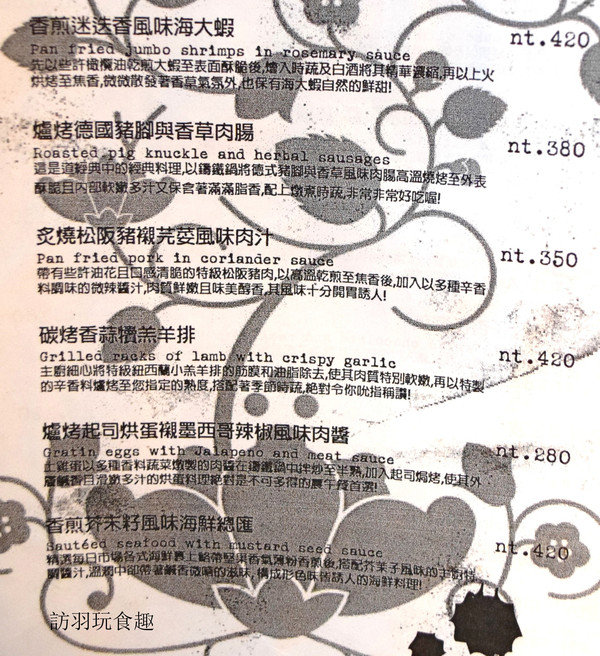 香煎迷迭香風味海大蝦
nt.420
Pan fried jumbo shrimps in rosemary sauce
先以些許橄欖油乾煎大蝦至表面酥脆後,燴入時蔬及白酒將其精華濃縮,再以上火
烘烤至焦香,微微散發著香草氣氛外,也保有海大蝦自然的鮮甜!
爐烤德國豬腳與香草肉腸
nt.380
Roasted pig knuckle and herbal sausages
這是道經典中的經典料理,以鑄鐵鍋將德式豬腳與香草風味肉腸高溫燒烤至外表
酥脆且內部軟嫩多汁又保含著滿滿脂香,配上燉煮時蔬,非常非常好吃喔!
炙燒松阪豬襯芫荽風味肉汁
nt.350
Pan fried pork in coriander sauce
帶有些許油花且口感清脆的特級松阪豬肉,以高溫乾煎至焦香後,加入以多種辛香
料調味的微辣醬汁,肉質鮮嫩且味美醇香,其風味十分開胃誘人!
碳烤香蒜犢羔羊排
nt.420
Grilled racks of lamb with crispy garlic
主廚細心將特級紐西蘭小羔羊排的筋膜和油脂剔去,使其肉質特別軟嫩,再以特製
的辛香料爐烤至您指定的熟度,搭配著季節時蔬,絕對令你吮指稱讚!
爐烤起司烘蛋襯墨西哥辣椒風味肉醬
nt.280
Gratin eggs with Jalapeno and meat sauce
土雞蛋以多種香料蔬菜燉製的肉醬在鑄鐵鍋中拌炒至半熟,加入起司焗烤,使其外
層鹹香且滑嫩多汁的烘蛋料理絕對是不可多得的晨午餐首選!
香煎芥茉籽風味海鮮總匯
nt.420
Sautéed seafood with mustard seed sauce
精選每日市場各式海鮮裹上略帶堅果香氣薄粉香煎後,搭配芥茉子風味的主廚特
調醬汁,溫潤中卻帶著鹹香微嗆的滋味,構成形色味皆誘人的海鮮料理!
訪羽玩食趣